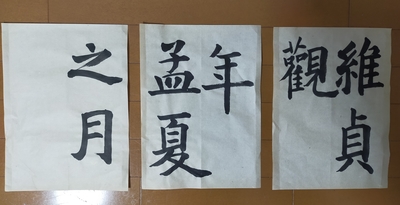 維貞
觀
年
孟夏
之月